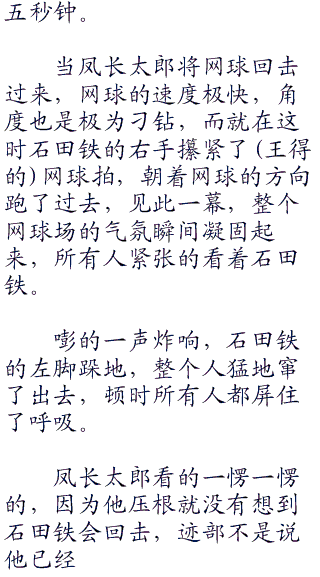 五秒钟。
当凤长太郎将网球回击
过来，网球的速度极快，角
度也是极为刁钻，而就在这
时石田铁的右手攥紧了(王得
的)网球拍，朝着网球的方向
跑了过去，见此一幕，整个
网球场的气氛瞬间凝固起
来，所有人紧张的看着石田
铁。
嘭的一声炸响，石田铁
的左脚跺地，整个人猛地窜
了出去，顿时所有人都屏住
了呼吸。
凤长太郎看的一愣一愣
的，因为他压根就没有想到
石田铁会回击，迹部不是说
他已经